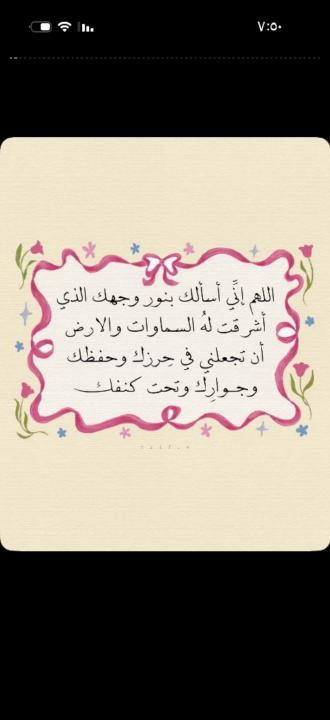 ٧:٥٠
اللهم إنِّي أسألك بنور وجهك الذي
أشرقت لهُ السماوات والارض
أن تجعلني في حِرزك وحفظك
وجوارِك وتحت كنفك